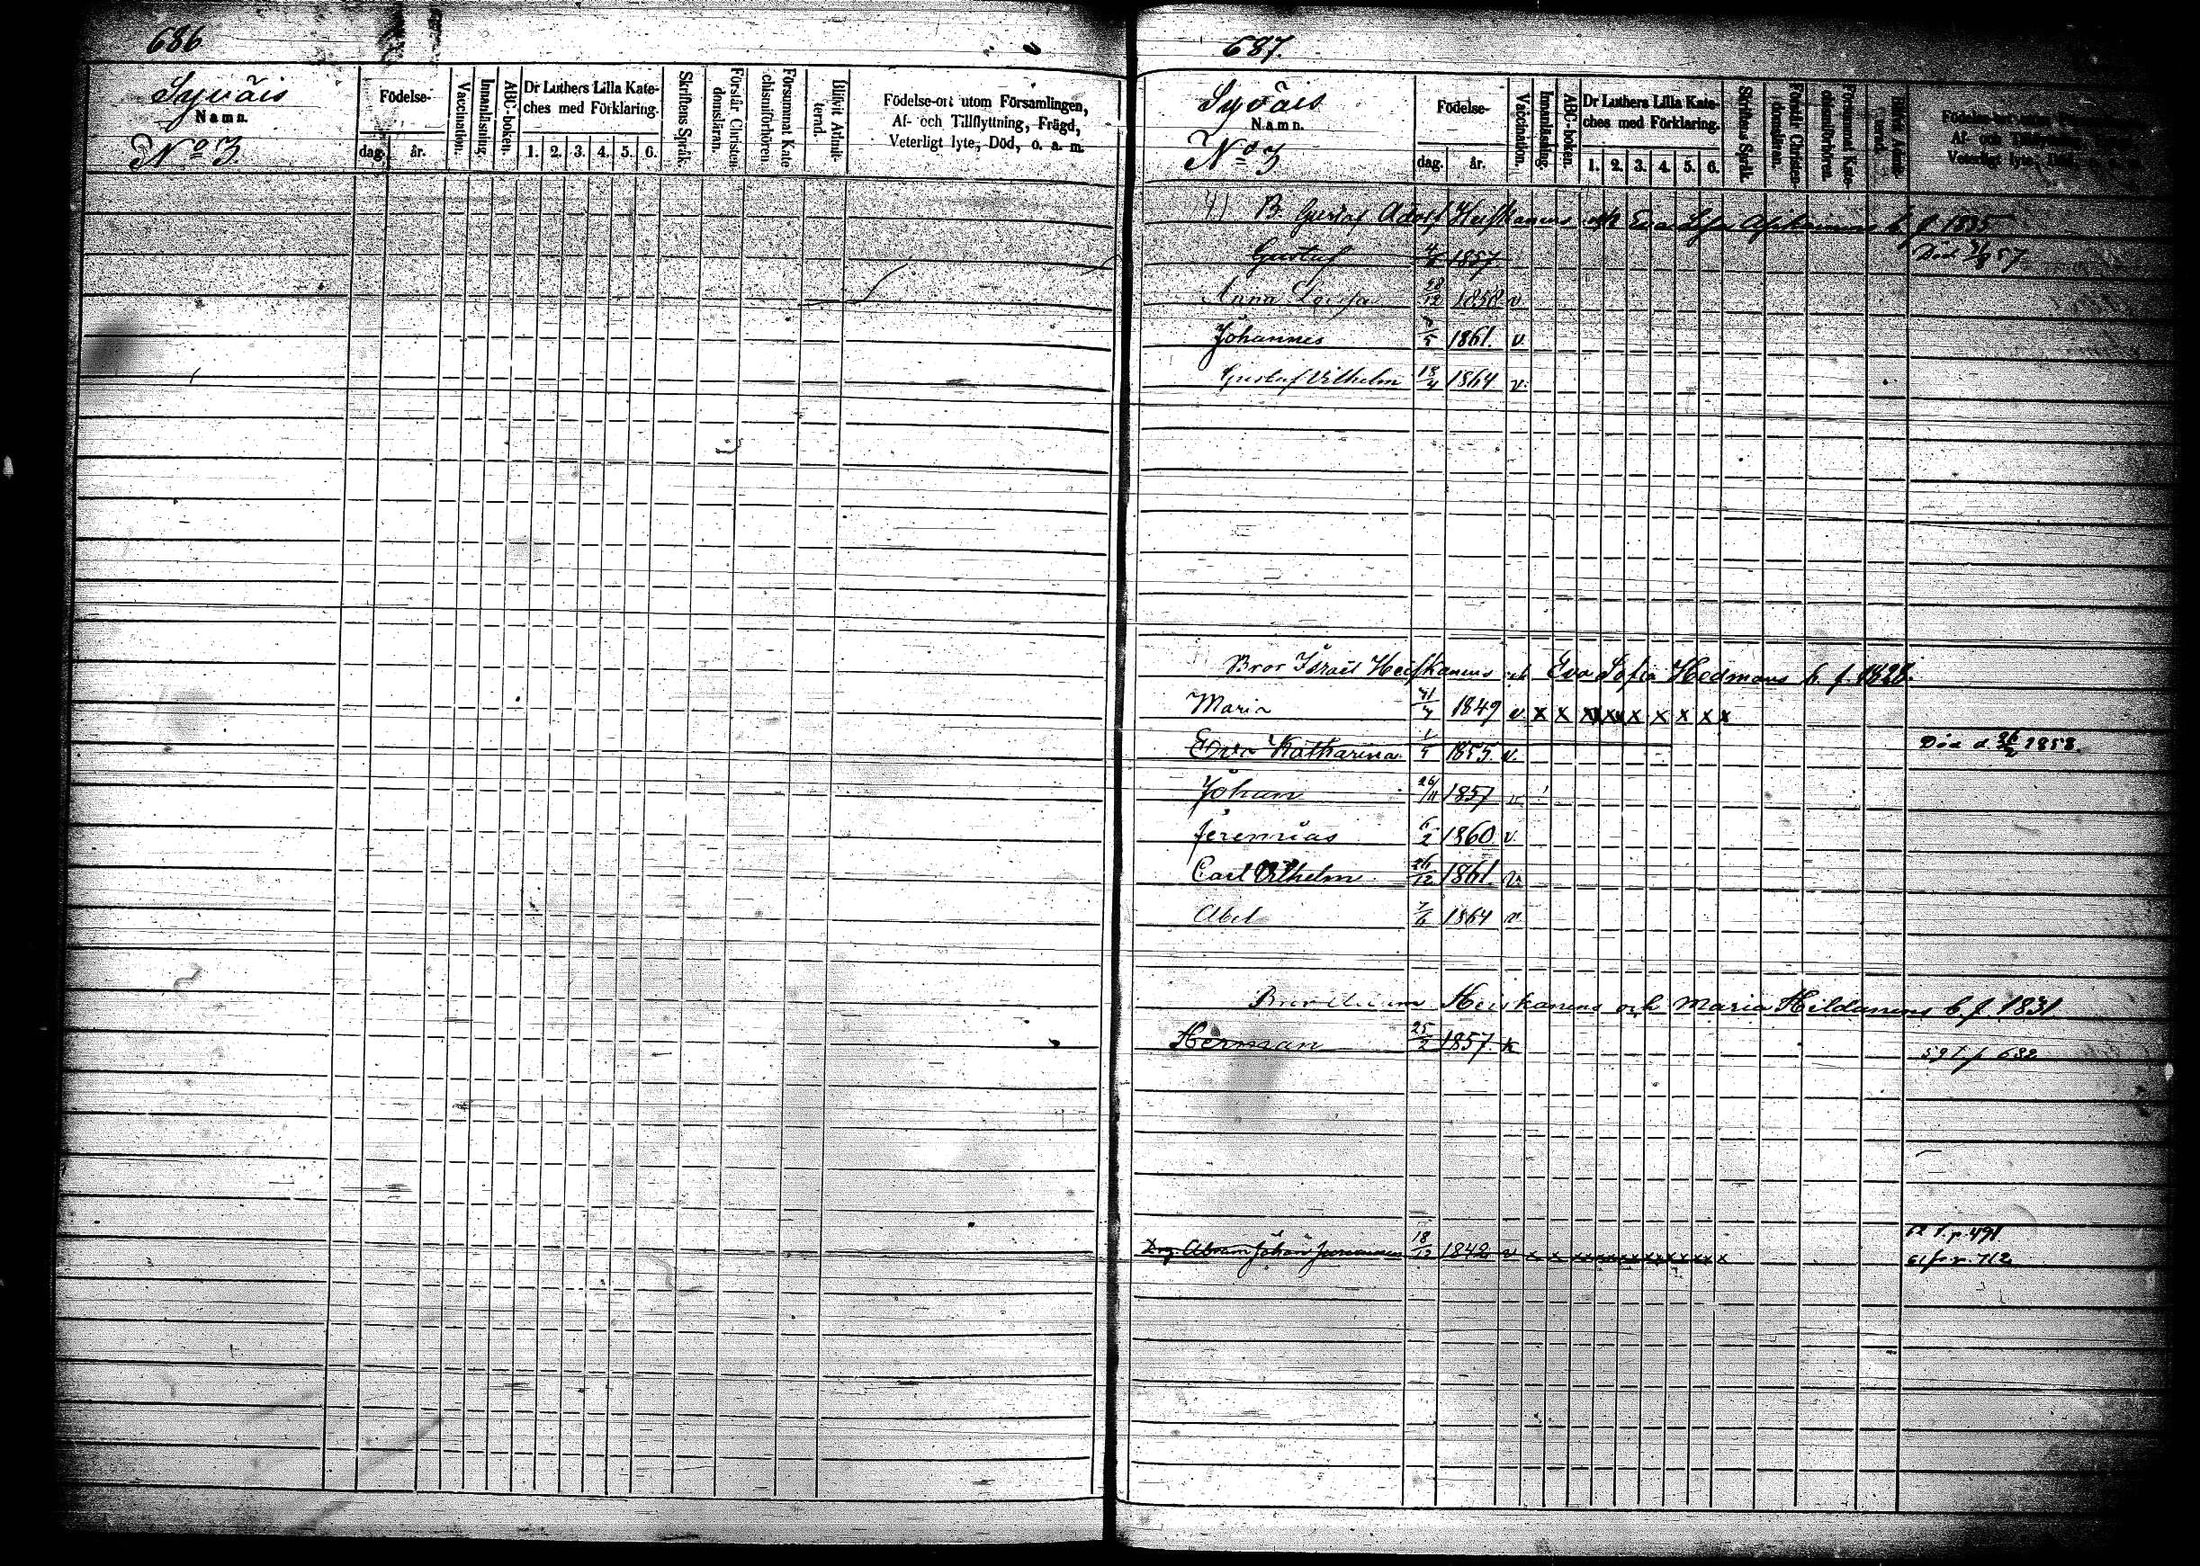 686
Syväis
Namn.
No 3
Födelse-
dag.
år.
Vaccination.
Innanläsning.
ABC-boken.
Dr Luthers Lilla Kate-
ches med Förklaring.
1. 2. 3. 4. 5. 6.
Skriftens Språk.
Förstår Christen-
domsläran.
Försummat Kate-
chismiförhören.
Blifvit Admit-
terad.
Födelse-ort utom Församlingen,
Af- och Tillflyttning, Frägd,
Veterligt lyte, Död, o. a. m.
687.
Syväis
Namn.
No 3
Födelse-
dag.
år.
Vaccination.
Innanläsning.
ABC-boken.
Dr Luthers Lilla Kate-
ches med Förklaring.
1. 2. 3. 4. 5. 6.
Skriftens Språk.
Förstår Christen-
domsläran.
Försummat Kate-
chismiförhören.
Blifvit Admit-
terad.
Födelse-ort utom Församlingen,
Af- och Tillflyttning, Frägd,
Veterligt lyte, Död, o. a. m.
B. Gustaf Adolf Heiskanens och Eva b. f. 1835
Gustaf 1857 Död 57
Anna Lovisa 28/12 1858 v
Johannes 1861. v
Gustaf Vilhelm 18/4 1864 v.
Bror Israel Heiskanens och Eva Sofia Hedmans b. f. 1828.
Maria 1849 v x x x x x x x x x
Eva Katharina 1/5 1855. v. Död d. 1858.
Johan 26/11 1857 v
Jeremias 6/2 1860 v.
Carl Vilhelm 26/12 1861. v.
Abel 7/6 1864 v
Bror Heiskanens och Maria Hildanens b. f. 1831
Herman 25/2 1857. 59 t. p. 682
Drg. Abram Johan 18/12 1842 v x x x x x x x x x x 62 t. p. 491
61 fr p. 712